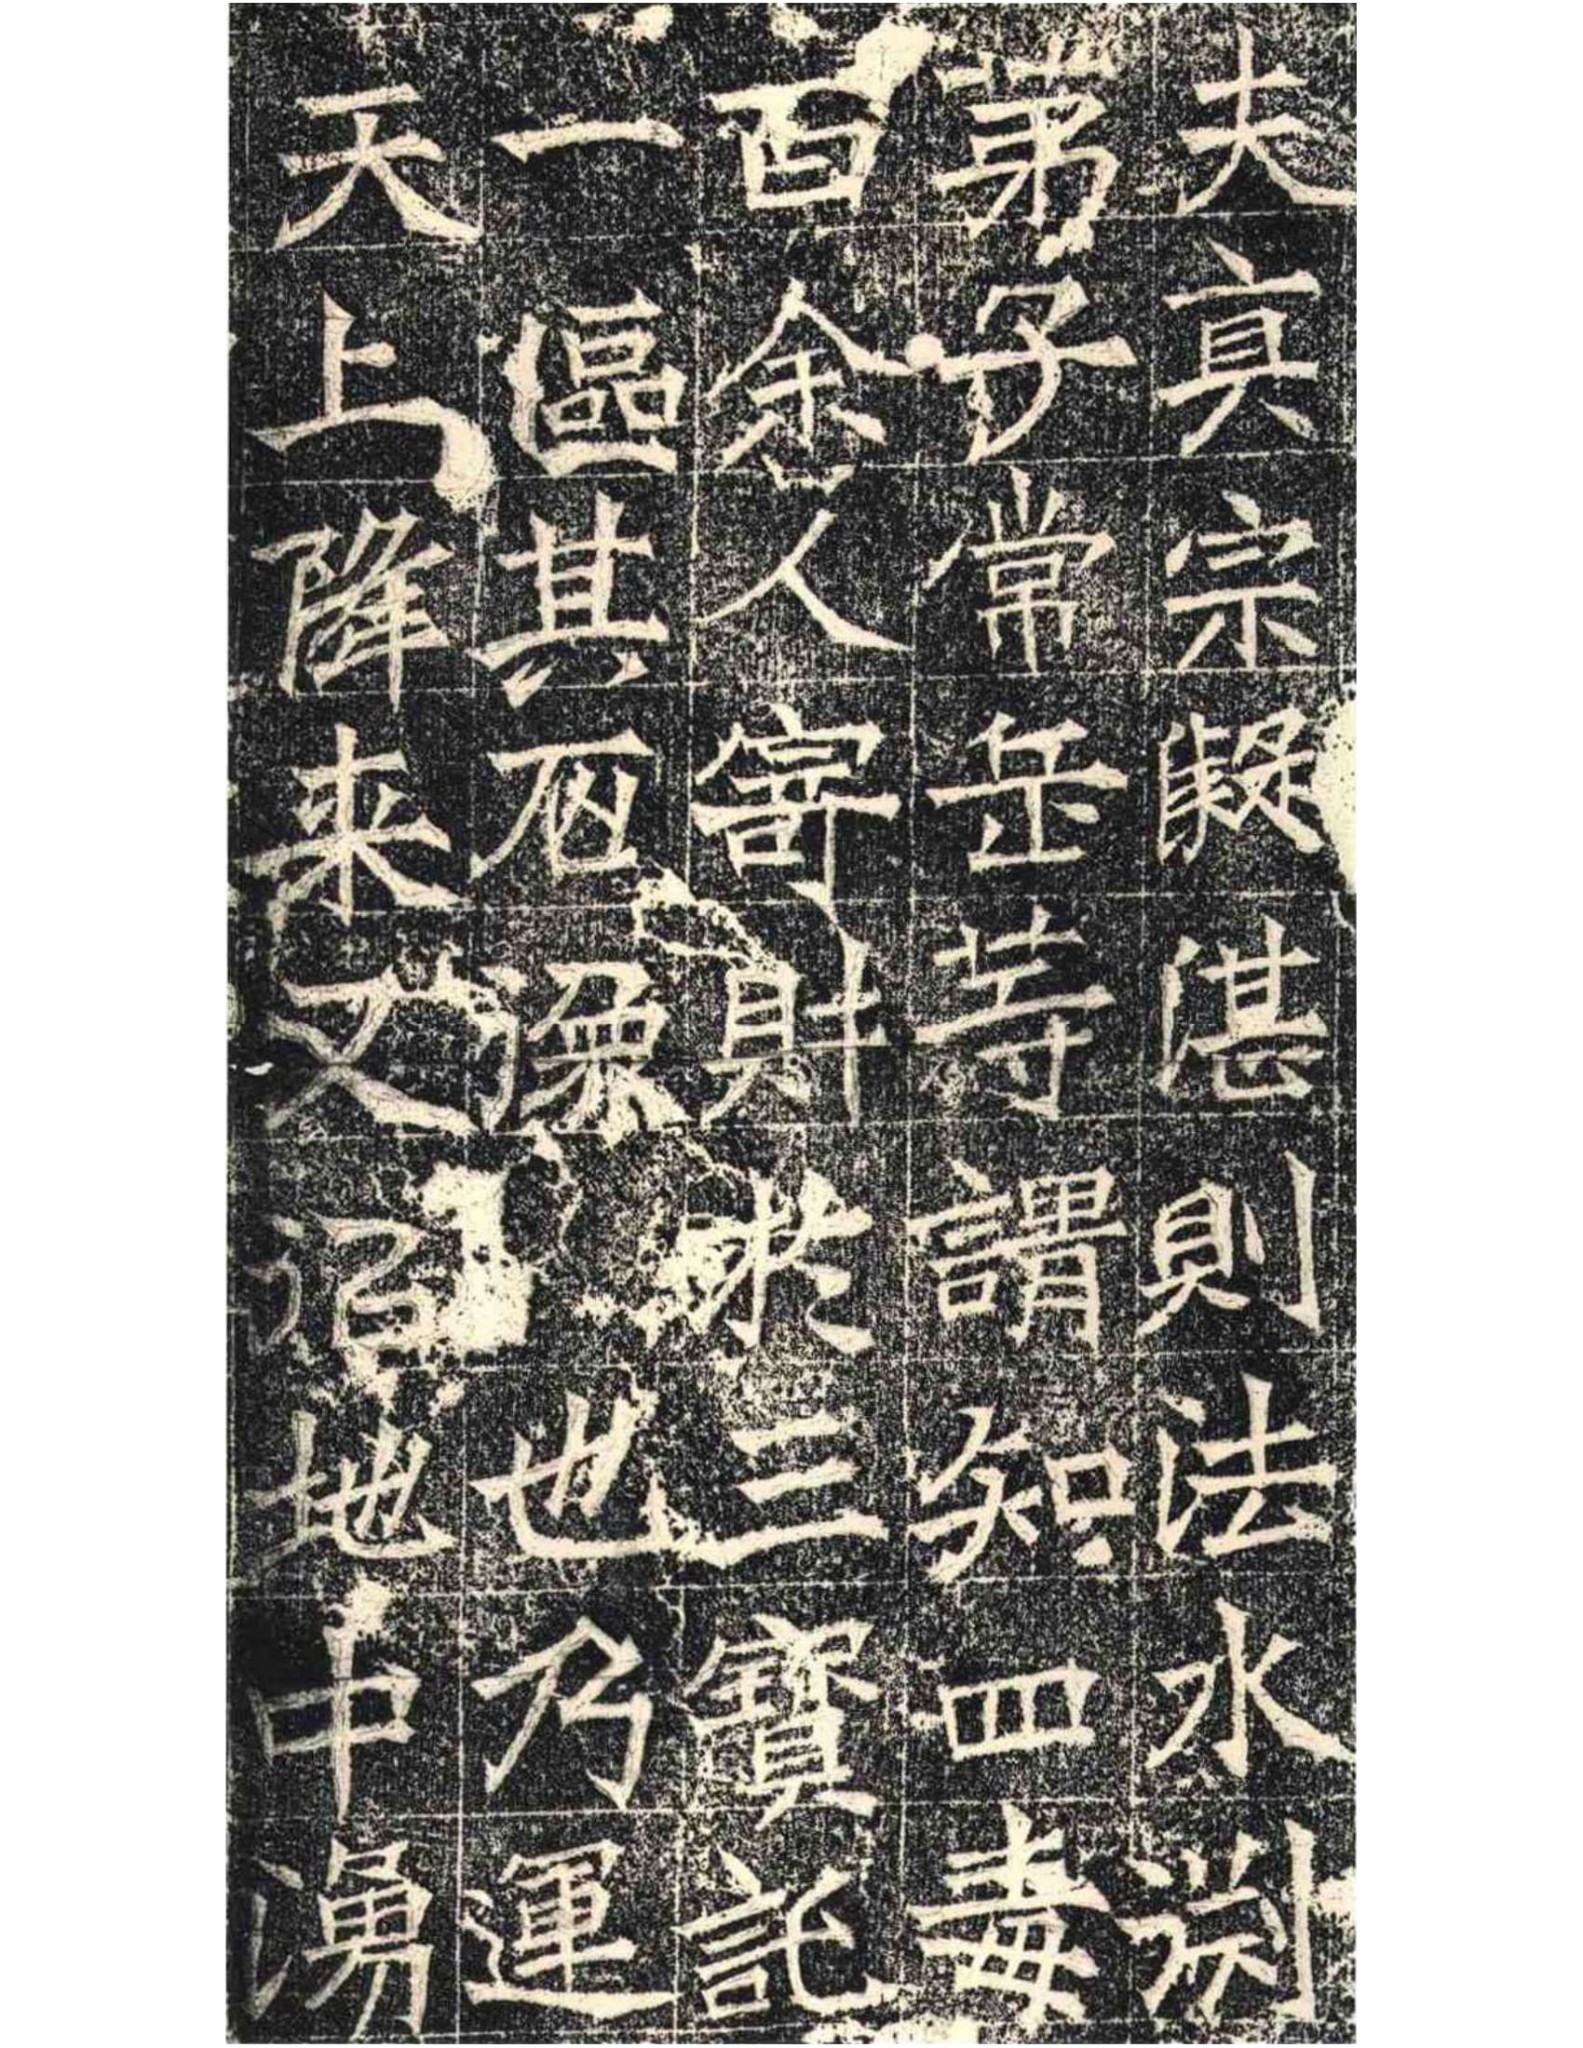 夫真宗凝湛則法水渕
苐子常岳等謂知四毒
百余人寄財於三寶託
一區其石像也乃運
天上降来又似地中湧